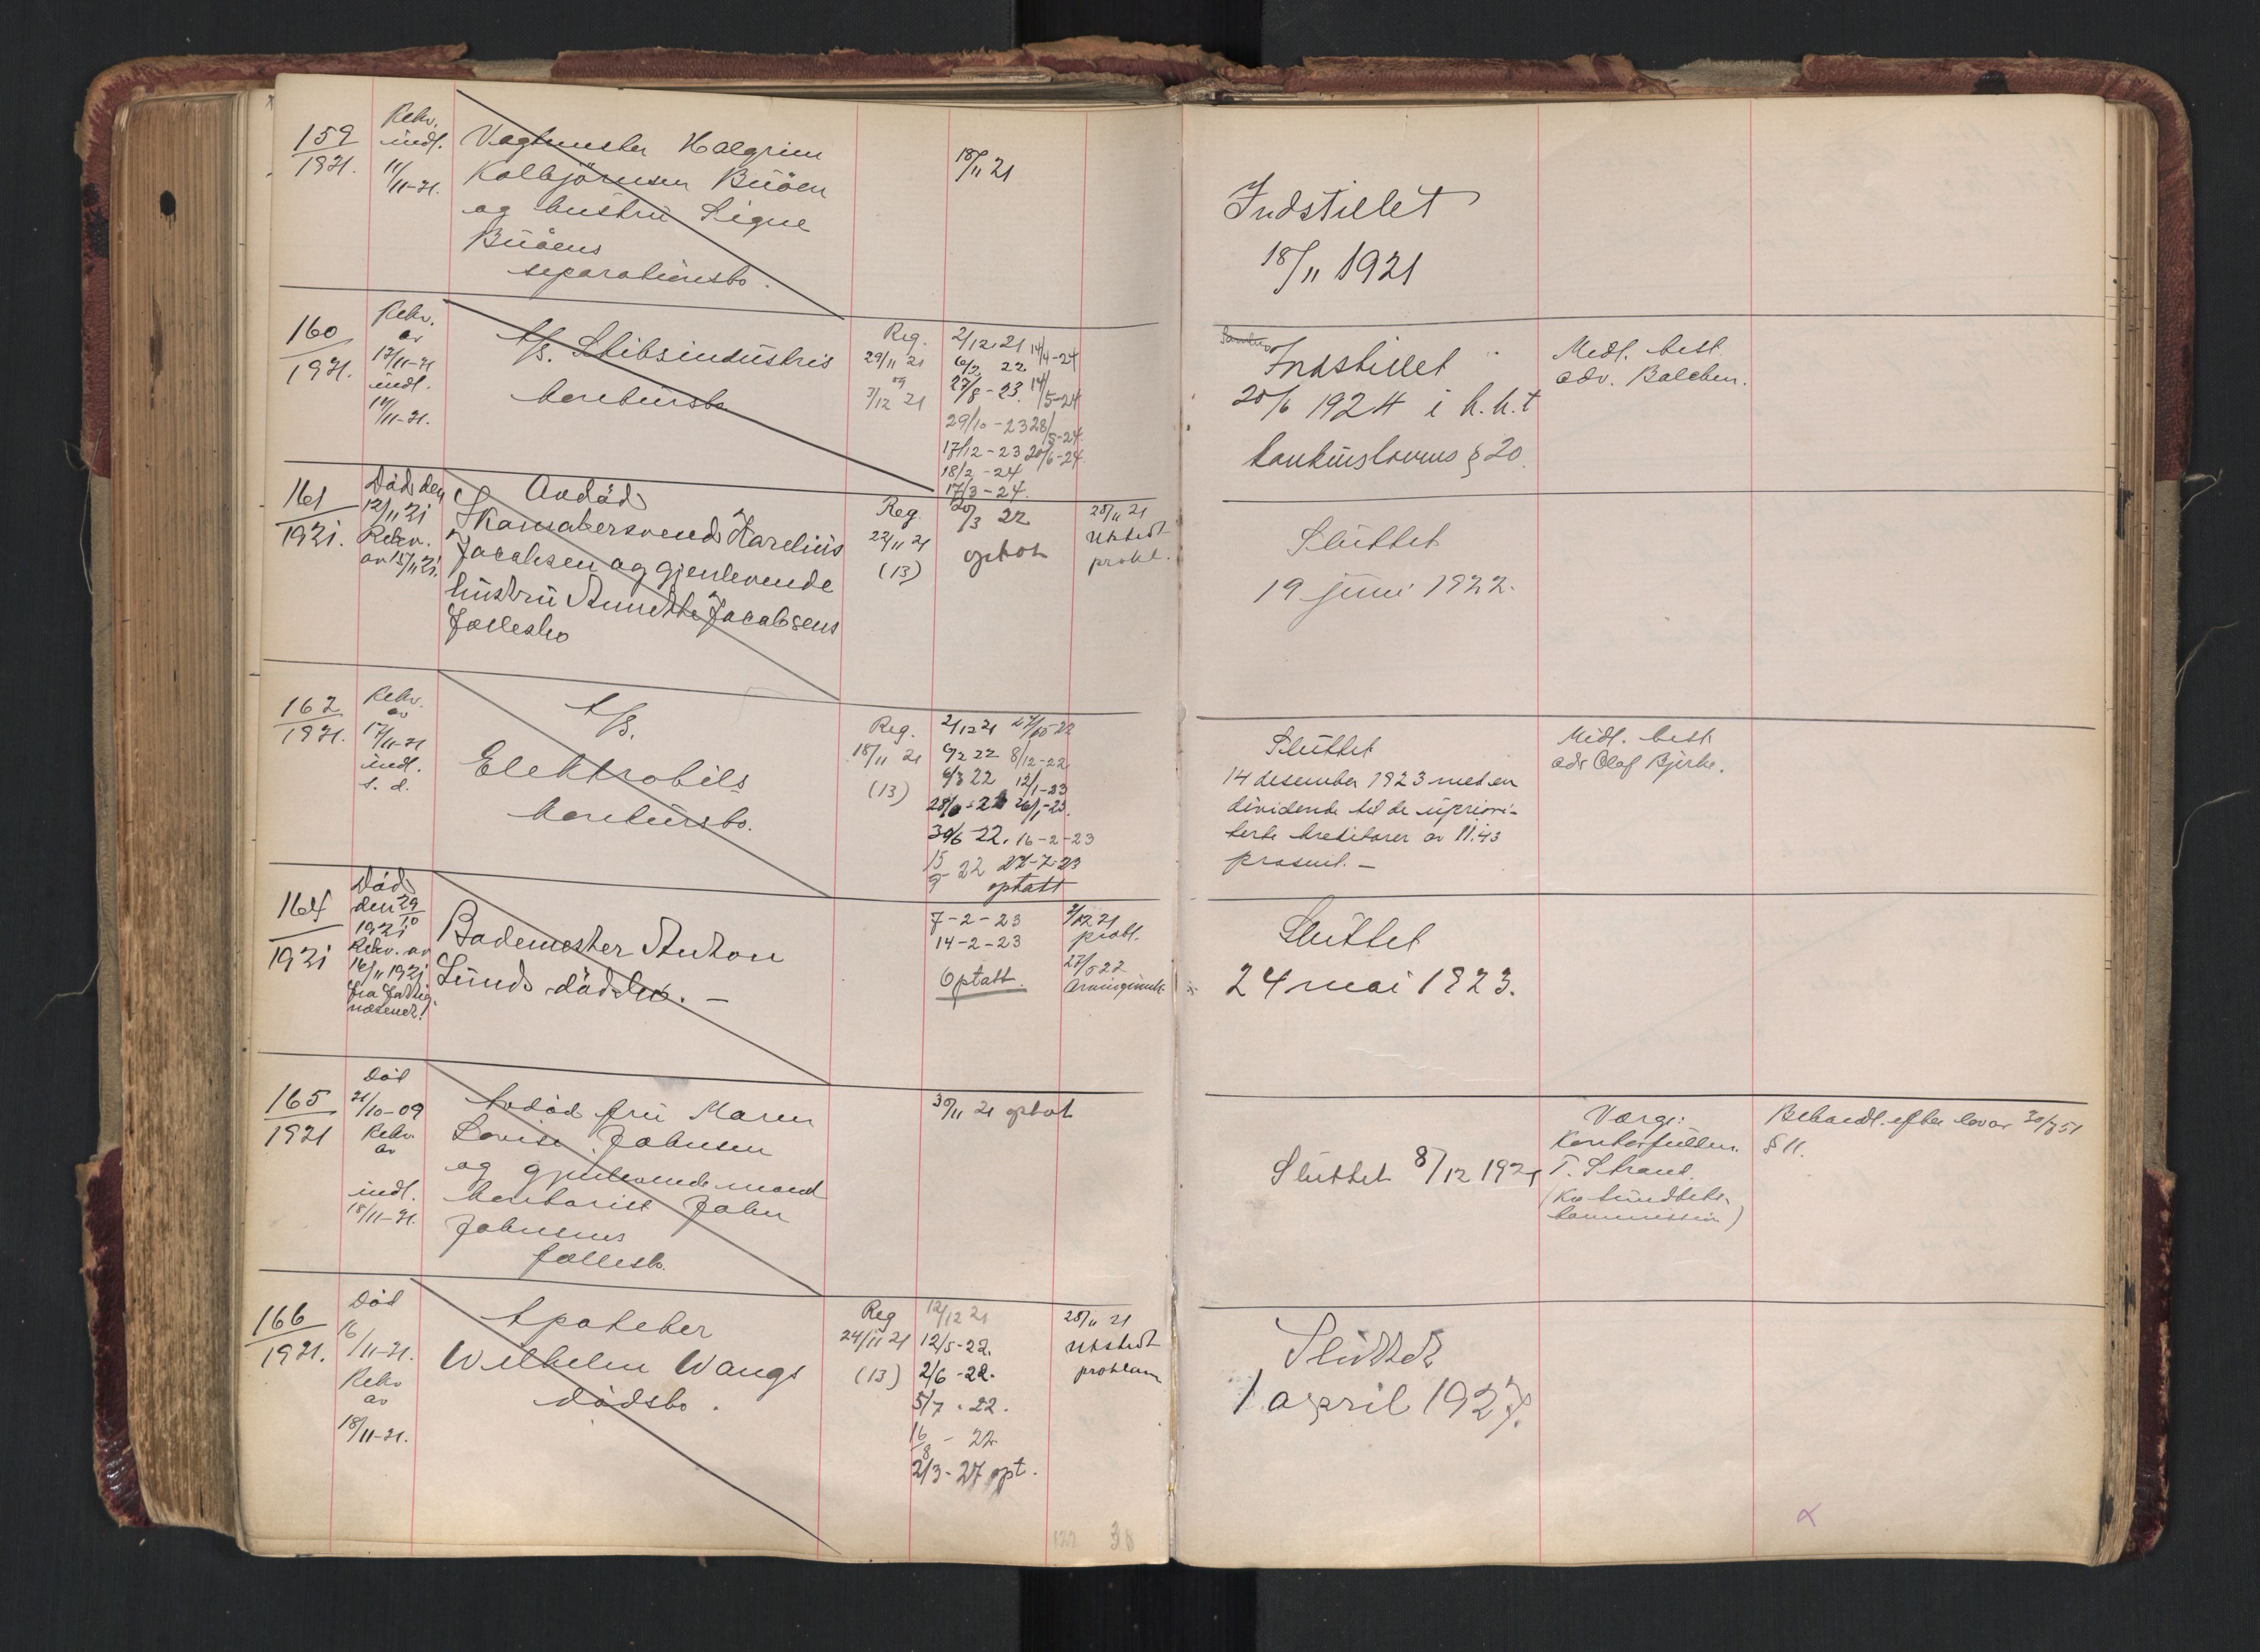 159
1921.
Rekv.
indl.
11/11-21.
Vagtmester Halgrim
Kolbjörnsen Buöen
og hustru Signe
Buöens
separationsbo.
18/11 21
Indstillet
18/11 1921
160
1921.
Rekv.
av
17/11-21
indl.
A/S. Skibsindustris
konkursbo
Reg.
29/11 21
og
3/12 21
2/12 21 14/4-24
6/2 22
27/8-23. 14/5-24
29/10-23 28/5-24.
17/12-23 20/6-24.
18/2-24
17/3-24.
Indstillet
20/6 1924 i h.h.t
konkurslovens § 20.
Medl. best.
adv. Balchen.
161
1921.
Død den
12/11 21
Rekv.
av 15/11 21.
Avdød
Skomakersvend Karelius
Jacobsen og gjenlevende
hustru Annette Jacobsens
fællesbo
Reg.
22/11 21
(13)
20/3 22
optat
25/11 21
Utstedt
prokl.
Sluttet
19 juni 1922.
162
1921.
Rekv.
av
17/11-21
indl.
s. d.
A/S.
Elektrobils
konkursbo.
Reg.
18/11 21
(13)
2/12 21 27/10-22
6/2 22 8/12-22
6/3 22 12/1-23
26/1-23.
30/6-22. 16-2-23
15/9-22 27-7-23
optatt
Sluttet
14 desember 1923 med en
dividende til de upriori-
terte kreditorer av 11.43
prosent. —
Medl. best
adv Olaf Bjerke.
164
1921
Død
den 29/10
1921
Rekv. av
16/11 1921
fra Fattig-
væsenet!
Bademester Anton
Lunds dødsbo. —
7-2-23
14-2-23
Optatt.
2/12 21
prokl.
27/5 22
Sluttet
24 mai 1923.
165
1921
Död
21/10-09
Rekv
av
indl.
18/11-21.
Avdöd fru Maren
Lovise Johnsen
og gjenlevende mand
kontorist John
Johnsens
fællesbo.
30/11 21 optat
Sluttet 8/12 1921
Værge:
Kontorfuldm.
T. Strand
Behandl. efter lov av 30/7 51
§ 11.
166
1921.
Död
16/11-21.
Rekv
av
18/11-21.
Apoteker
Wilhelm Wangs
dödsbo.
Reg
24/11 21
(13)
12/12 21
12/5-22.
2/6-22.
5/7-22.
16/8-22
2/3-27 opt.
25/11 21
Utstedt
proklam
Sluttet
1 april 1927.
122 38